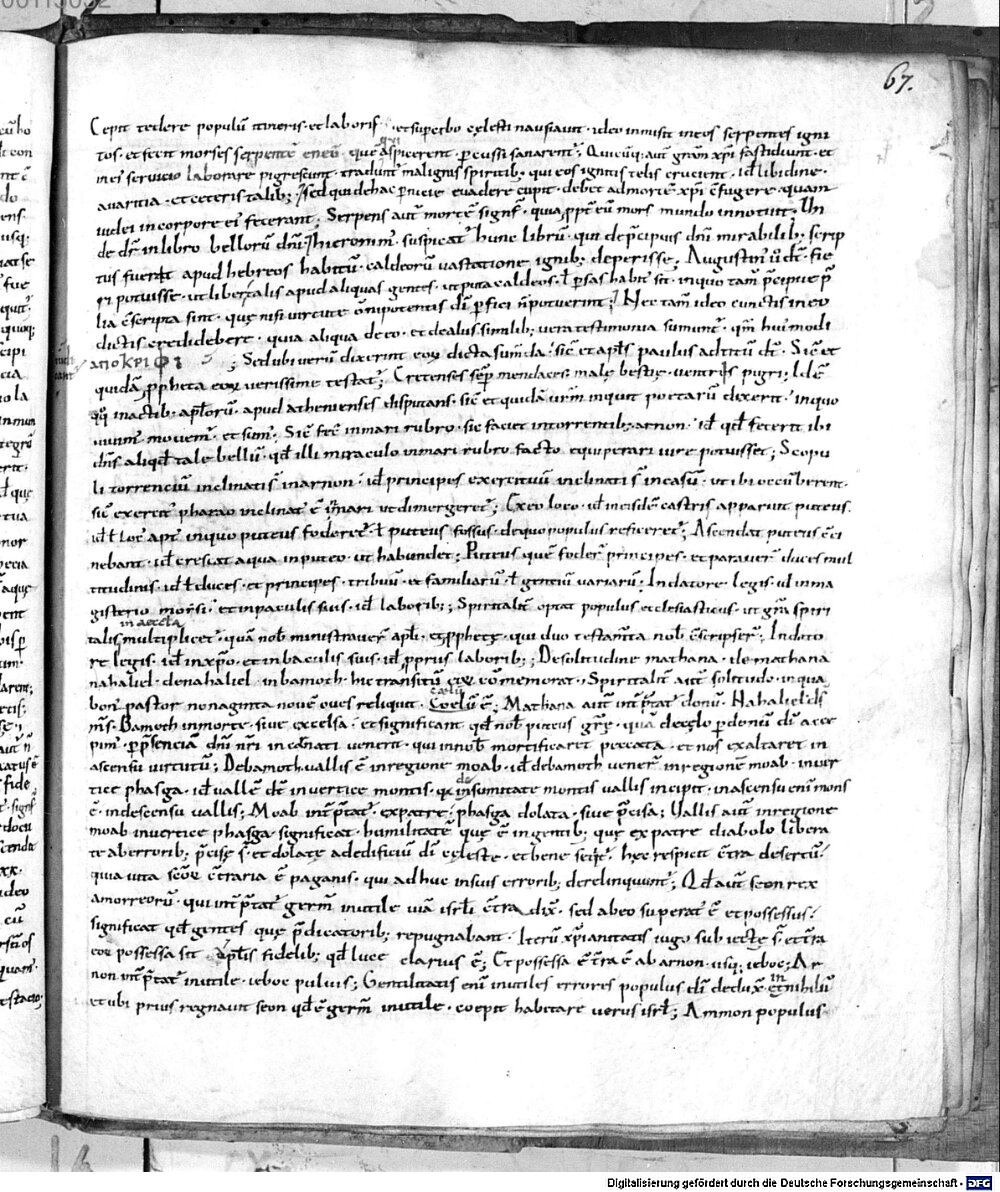 67.
Cepit tedere populū itineris · et laboris · et superbo cęlesti nausiauit · ideo inmisit in eos serpentes igni
tos · et fecit moises serpentē eneū · quē aspicerent percussi sanarent; Quicūq; aut̄ gratiam xp̄i fastidiunt · et
in ei seruicio laborare pigrescunt · tradunt̄ malignis spiritib; qui eos ignitis telis crucient · id ē libidine ·
auaritia · et ceteris talib; sed qui de hac pernicie euadere cupit · debet ad mortē xp̄i cōfugere · quam
iudei in corpore ei fecerant; Serpens aut̄ mortē signif · quia ꝓpt̄ eū mors mundo innotuit; Un
de dr̄ in libro bellorū dn̄i; hieronim̄ · suspicat̄ hunc librū · qui de p̄cipuis dn̄i mirabilib; scrip
tus fuerat apud hebreos habitū · caldeorū uastatione ignib; deperisse; Augustin̄ ū dt̄ · fie
ri potuisse · ut liber talis apud aliquas gentes · ut puta caldeos · ł persas habit̄ sit · in quo tam p̄cipue p̄
lia cōscripta sint · quę nisi uirtute om̄ipotentis dī perfici n̄ potuerint; Nec tam̄ ideo cunctis in eo
dictis credi debere · quia aliqua de eo · et de aliis similib; uera testimonia sumunt̄ · qm̄ hui modi
ΑΠΟΚΡΙΦΙ ; Sed ubi uerū dixerint eoꝝ dicta sumenda · sic̄ et apl̄s paulus ad titū dt̄ · Sic̄ et
quidā ꝓpheta eoꝝ uerissime testat̄; Cretenses semp̄ mendaces · malę bestię · uentris pigri; Idē
qq; in actib; apl̄orū · apud athenienses disputans · sic̄ et quidā ur̄m inquit poetarū dixerit · in quo
uiuim̄ mouem̄ · et sum̄; Sic̄ fec̄ in mari rubro · sic faciet in torrentib; arnon · id ē qd̄ fecerit ibi
dn̄s aliqd̄ tale bellū · qd̄ illi miraculo in mari rubro facto equiperari iure potuisset; Scopu
li torrenciū inclinati s̄ in arnon · id ē principes exercituū inclinati s̄ in casū · ut ibi occūberent ·
sic̄ exercit̄ pharao inclinat̄ ē in mari ut dimergeret̄; Ex eo loco · id ē in eisdē castris apparuit puteus ·
id ē loc̄ apt̄ in quo puteus foderet̄ · ł puteus fossus · de quo populus reficeret̄; Ascendat puteus cōci
nebant · id ē crescat aqua in puteo · ut habundet; Puteus quē foder̄ principes · et parauer̄ duces mul
titudinis · id ē duces · et principes · tribuū · et familiarū · ł gentiū uariarū; In datore legis · id ē in ma
gisterio moisi · et in baculis suis · id ē laborib;; Spiritalit̄ optat populus ecclesiasticus · ut gr̄a spiri
in aeccl̄a
talis multiplicet̄ · quā nob̄ ministrauer̄ apl̄i · et ꝓphetę · qui duo testam̄ta nob̄ cōscripser̄; In dato
re legis · id ē in xp̄o · et in baculis suis · id ē propriis laborib;; De solitudine mathana · de mathana
nahaliel · de nahaliel in bamoth · hic transitū eoꝝ cōmemorat; Spiritalit̄ aut̄ solitudo · in qua
cęlū
bon̄ pastor nonaginta nouē oues reliquit · Coelū ē; Mathana aut̄ int̄p̄tat̄ donū · Nahaliel · d̄s
m̄s · Bamoth in morte · siue excelsa · et significant qd̄ nob̄ puteus gr̄ę · quā de cęlo per donū dī acce
pim̄ · per p̄senciā dn̄i nr̄i incarnati uenerit · qui in nob̄ mortificaret peccata · et nos exaltaret in
ascensu uirtutū; De bamoth uallis ē in regione moab · id ē de bamoth uener̄ in regionē moab · in uer
tice phasga · id ē uallē dt̄ in uertice montis · quia de insūmitate montis uallis incipit · in ascensu enī mons
ē · in descensu uallis; Moab int̄p̄tat̄ · ex patre; phasga dolata · siue p̄cisa; Uallis aut̄ in regione
moab in uertice phasga · significat · humilitatē quę ē in gentib; quę ex patre diabolo libera
te ab errorib; p̄cisę s̄ · et dolatę ad edificiū dī cęleste · et bene seqit̄ · hęc respicit cōtra desertū ·
quia uita sc̄oꝝ cōtraria ē paganis · qui adhuc in suis errorib; derelinquunt̄; Qd̄ aut̄ seon rex
amorreorū · qui int̄p̄tat̄ germen inutile uiā isrl̄ cōtradix̄ · sed ab eo superat̄ ē et possessus ·
significat qd̄ gentes quę p̄dicatorib; repugnabant · Iterū xp̄ianitatis iugo subiectę s̄ · et t̄ra
eoꝝ possessa sit apl̄is fidelib; qd̄ luce clarius ē; Et possessa ē t̄ra ē ab arnon · usq; ieboc; Ar
non int̄p̄tat̄ inutile · ieboc puluis; Gentilitatis enī inutiles errores populus dī dedux̄ in nihilū
et ubi prius regnauit seon qd̄ ē germen inutile · coepit habitare uerus isrl̄; Ammon populus·
Digitalisierung gefördert durch die Deutsche Forschungsgemeinschaft - DFG